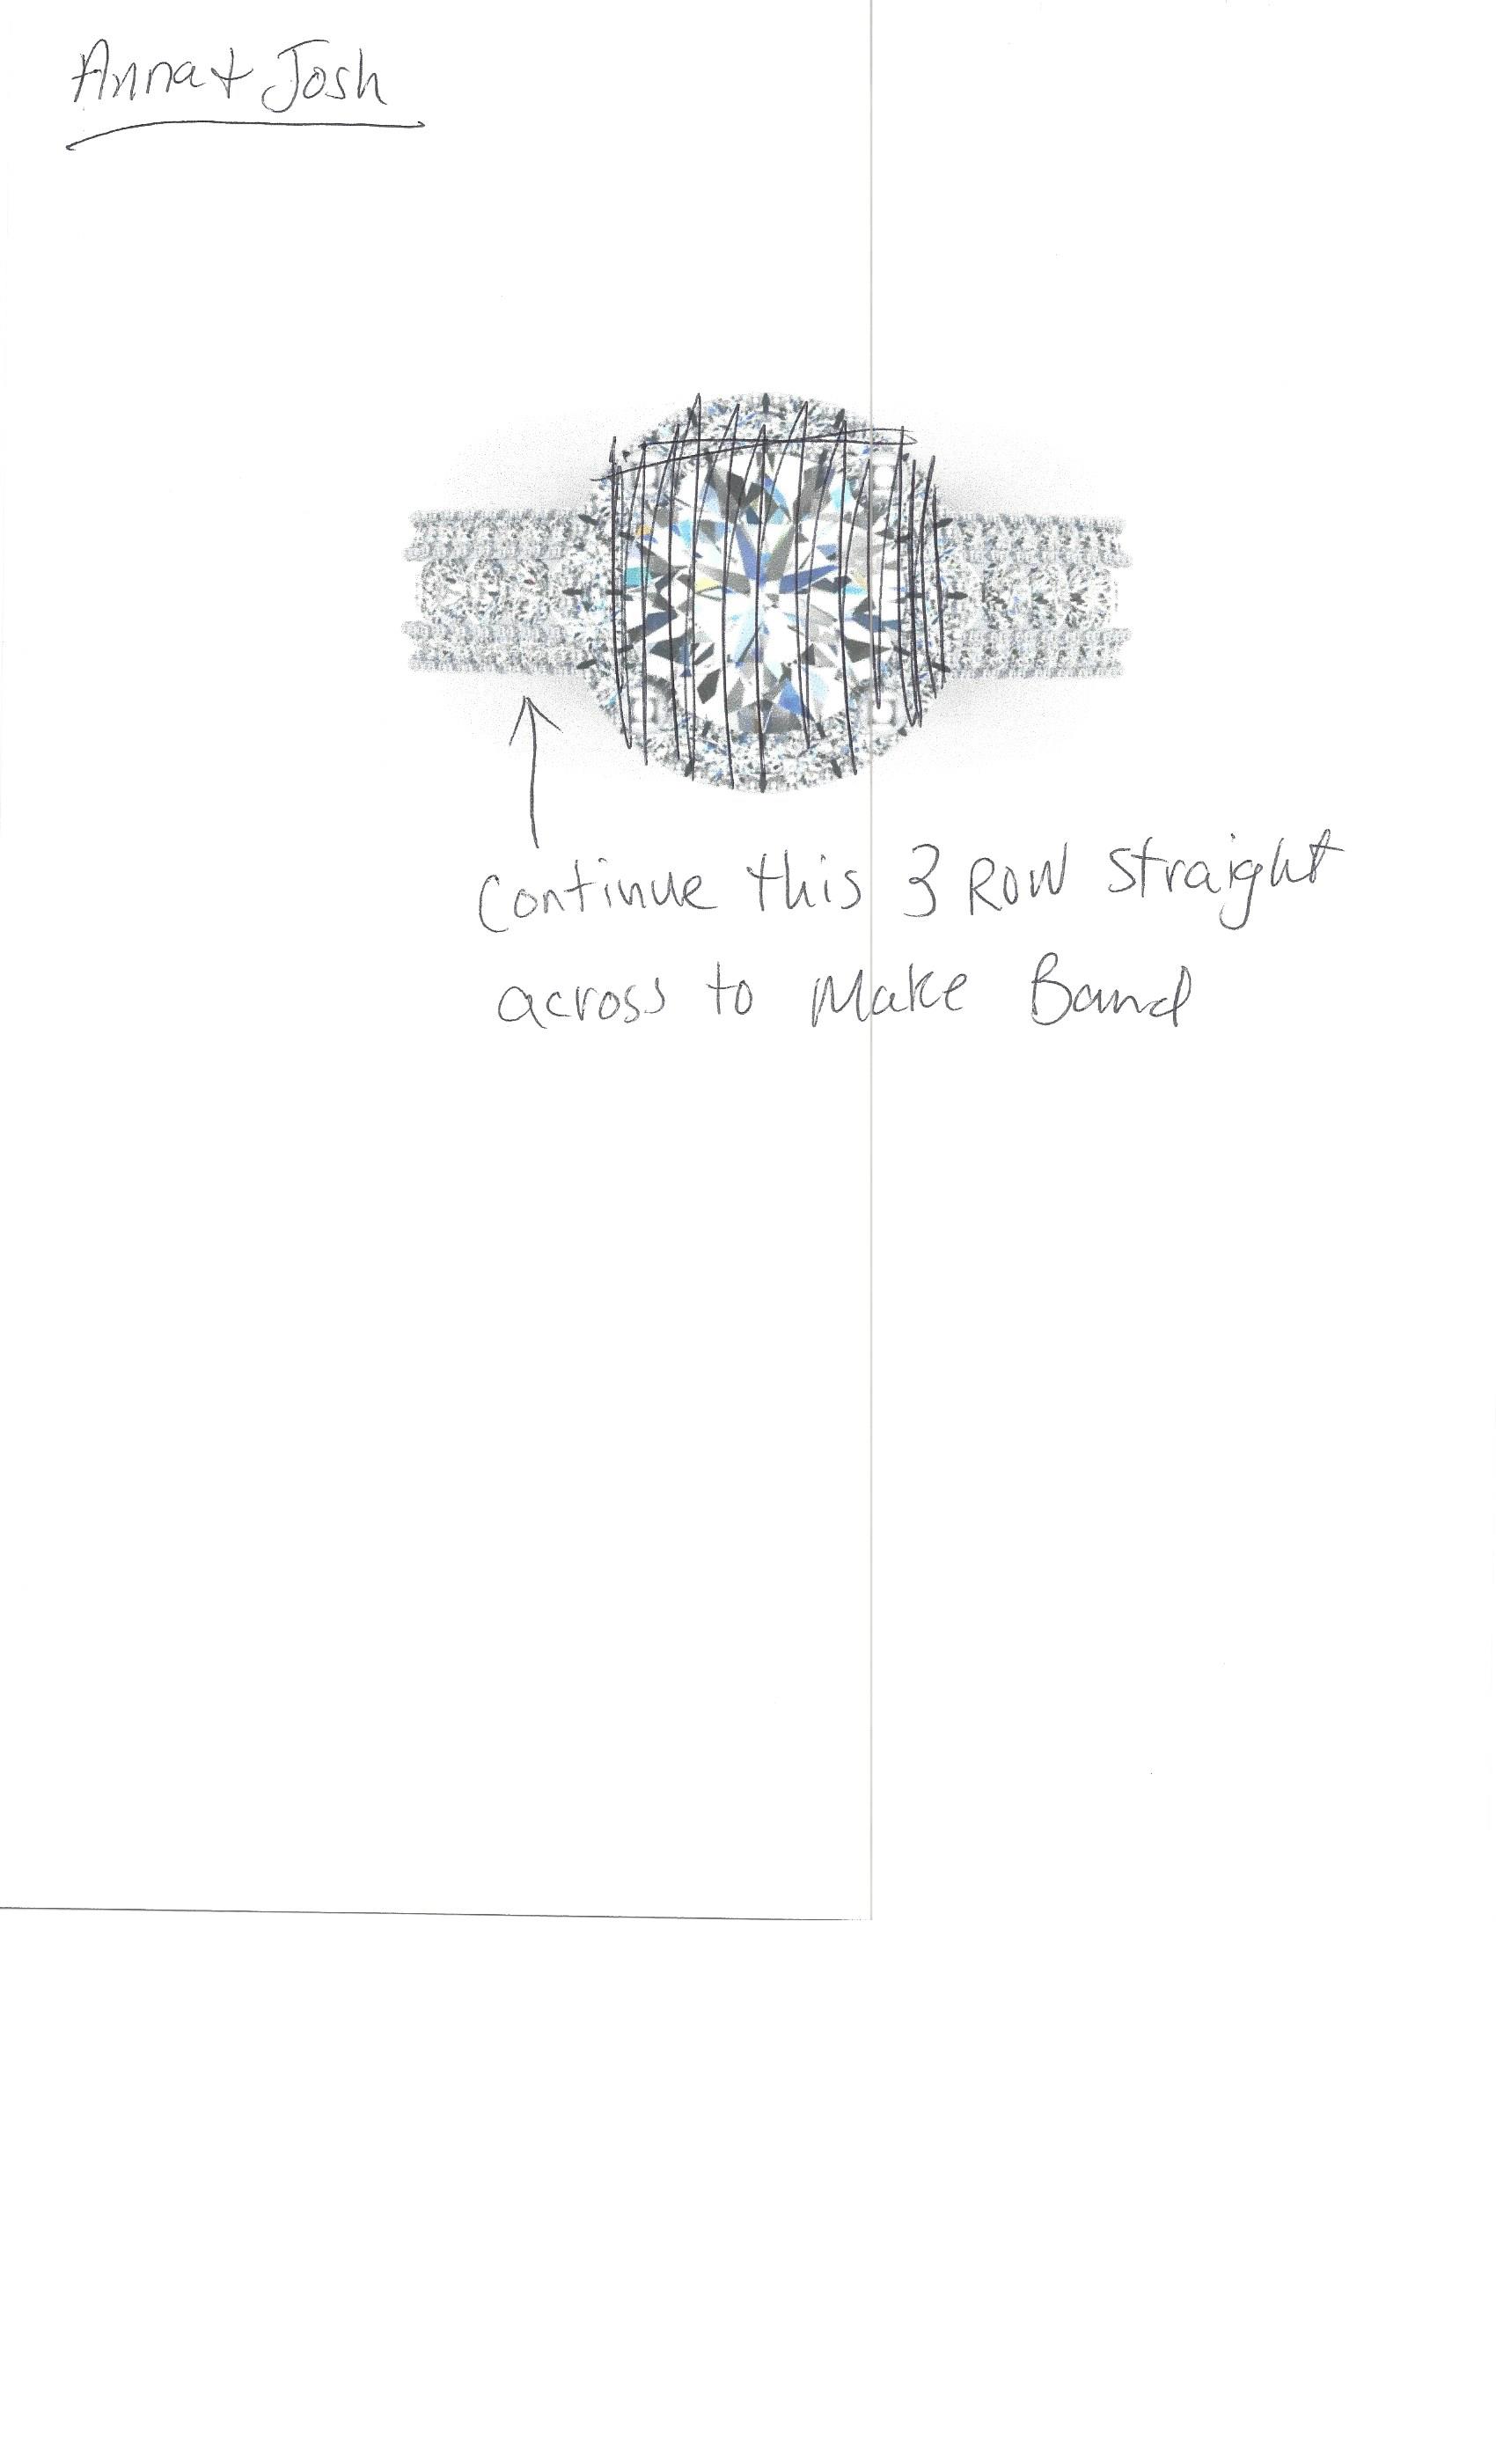 Anna + Josh
Continue this 3 Row straight
across to Make Band